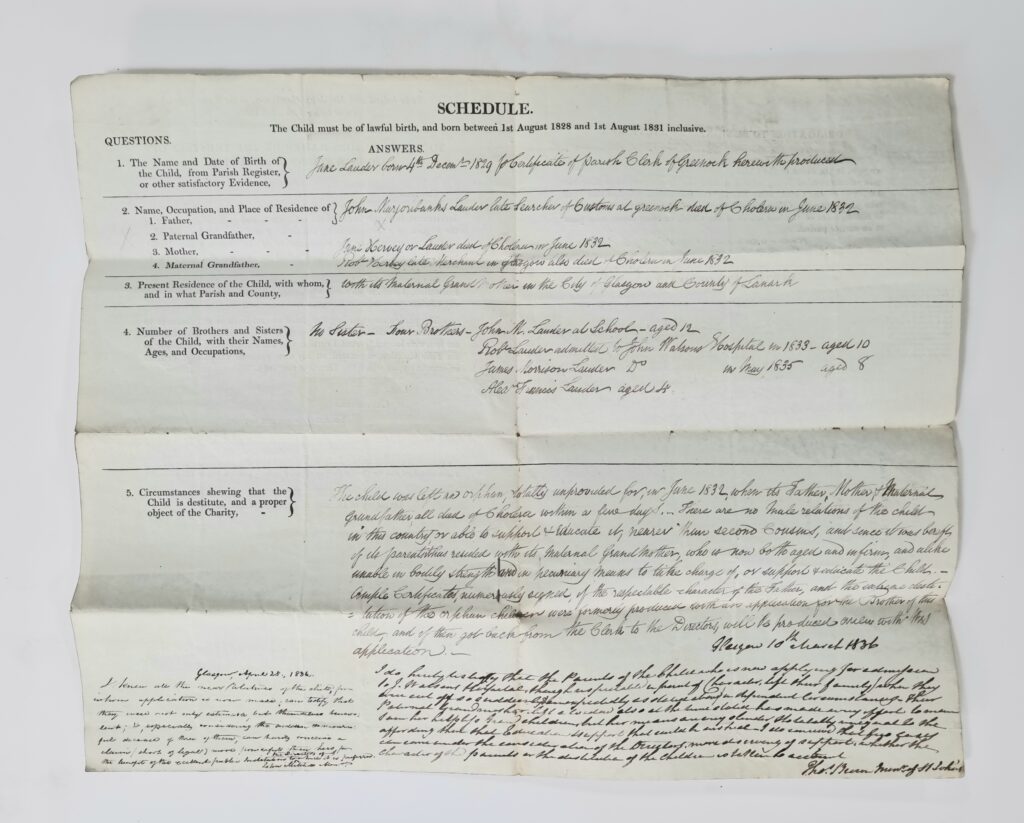 SCHEDULE.
The Child must be of lawful birth, and born between 1st August 1828 and 1st August 1831 inclusive.
QUESTIONS.
ANSWERS.
1. The Name and Date of Birth of
the Child, from Parish Register,
or other satisfactory Evidence,
Jane Lauder born 4th Decemr. 1829 Certificate of Parish Clerk of Greenock herewith produced
2. Name, Occupation, and Place of Residence of
1. Father,
John Marjoribanks Lauder late Searcher of Customs at Greenock died of Cholera in June 1832
2. Paternal Grandfather,
3. Mother,
Jane Hervey or Lauder died of Cholera in June 1832
4. Maternal Grandfather,
Robt Hervey late Merchant in Glasgow also died of Cholera in June 1832
3. Present Residence of the Child, with whom,
and in what Parish and County,
With its Maternal Grand Mother in the City of Glasgow and County of Lanark
4. Number of Brothers and Sisters
of the Child, with their Names,
Ages, and Occupations,
No Sister – Four Brothers – John M. Lauder at School – aged 12
Robt Lauder admitted to John Watsons Hospital in 1833 – aged 10
James Morrison Lauder Do in May 1835 aged 8
Alexr Lauder aged 4
5. Circumstances shewing that the
Child is destitute, and a proper
object of the Charity,
The child was left an orphan, totally unprovided for, in June 1832, when its Father, Mother & Maternal
Grandfather all died of Cholera within a few days. – There are no Male relations of the child
in this country or able to support & educate it, nearer than second Cousins, and since it was bereft
of its parents it has resided with its Maternal Grand Mother, who is now both aged and infirm, and alike
unable in bodily strength and in pecuniary means to take charge of, or support & educate the Child. –
Certificates, numerously signed of the respectable character of the Father, and the entire desti-
=tution of the orphan children were formerly produced with an application for the Brother of this
child, and if then got back from the Clerk to the Directors, will be produced with this
application. –
Glasgow 10th March 1836
Glasgow, April 28, 1836.
I knew all the near Relatives of the child, for
whom application is now made, can testify that
they were not only estimable but themselves benevo-
lent; & especially considering the sudden & mourn-
ful decease of three of them, can hardly conceive a
claim, short of legal,
the benefit of the excellent public Institution to which it is preferred.
I do hereby testify that the Parents of the Child who is now applying for admission
to J. Watsons Hospital, though respectable in point of character, left their family, when they
were cut off so suddenly & unexpectedly, as destitute and dependent Their
I am
affording them that Education & support that could be wished. I do conceive that few cases
can come under the consideration of the Directors, more deserving of support, whether the
Character of the Parents or the destitution of the Children is taken into account
Thos. Brown Minr. of St Johns